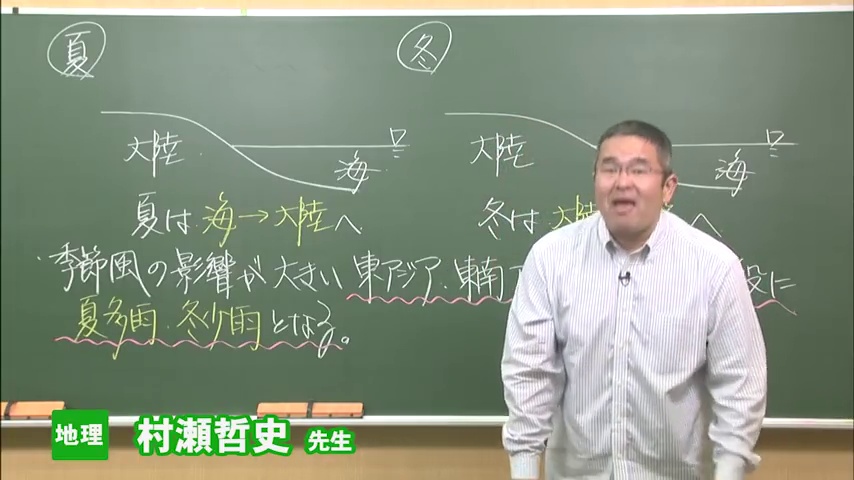 夏
冬
大陸
海
大陸
海
夏は海→大陸へ
冬は大陸 へ
季節風の影響が大きい東アジア・東南ア 般に
夏多雨・冬少雨となる。
地理 村瀬哲史 先生